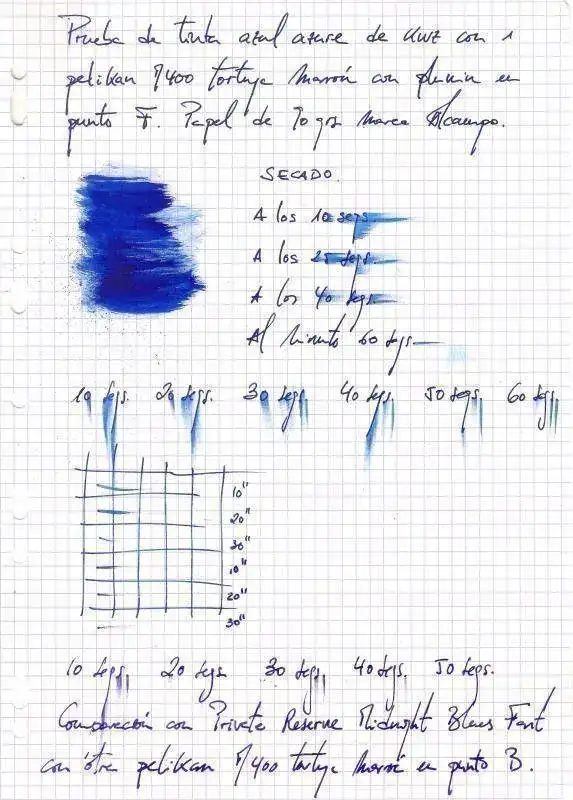 Prueba de tinta azul azure de KWZ con 1
pelikan M400 tortuga marrón con plumin en
punto F. Papel de 70 grs marca Alcampo.
SECADO.
A los 10 segs.
A los 25 segs.
A los 40 segs.
Al minuto 60 sgs.
10 segs. 20 segs. 30 segs. 40 segs. 50 segs. 60 segs.
10"
20"
30"
10"
20"
30"
10 segs. 20 segs 30 segs. 40 segs. 50 segs.
Comparación con Private Reserve Midnight Blues Fast
con otra pelikan M400 tortuga marrón en punto B.